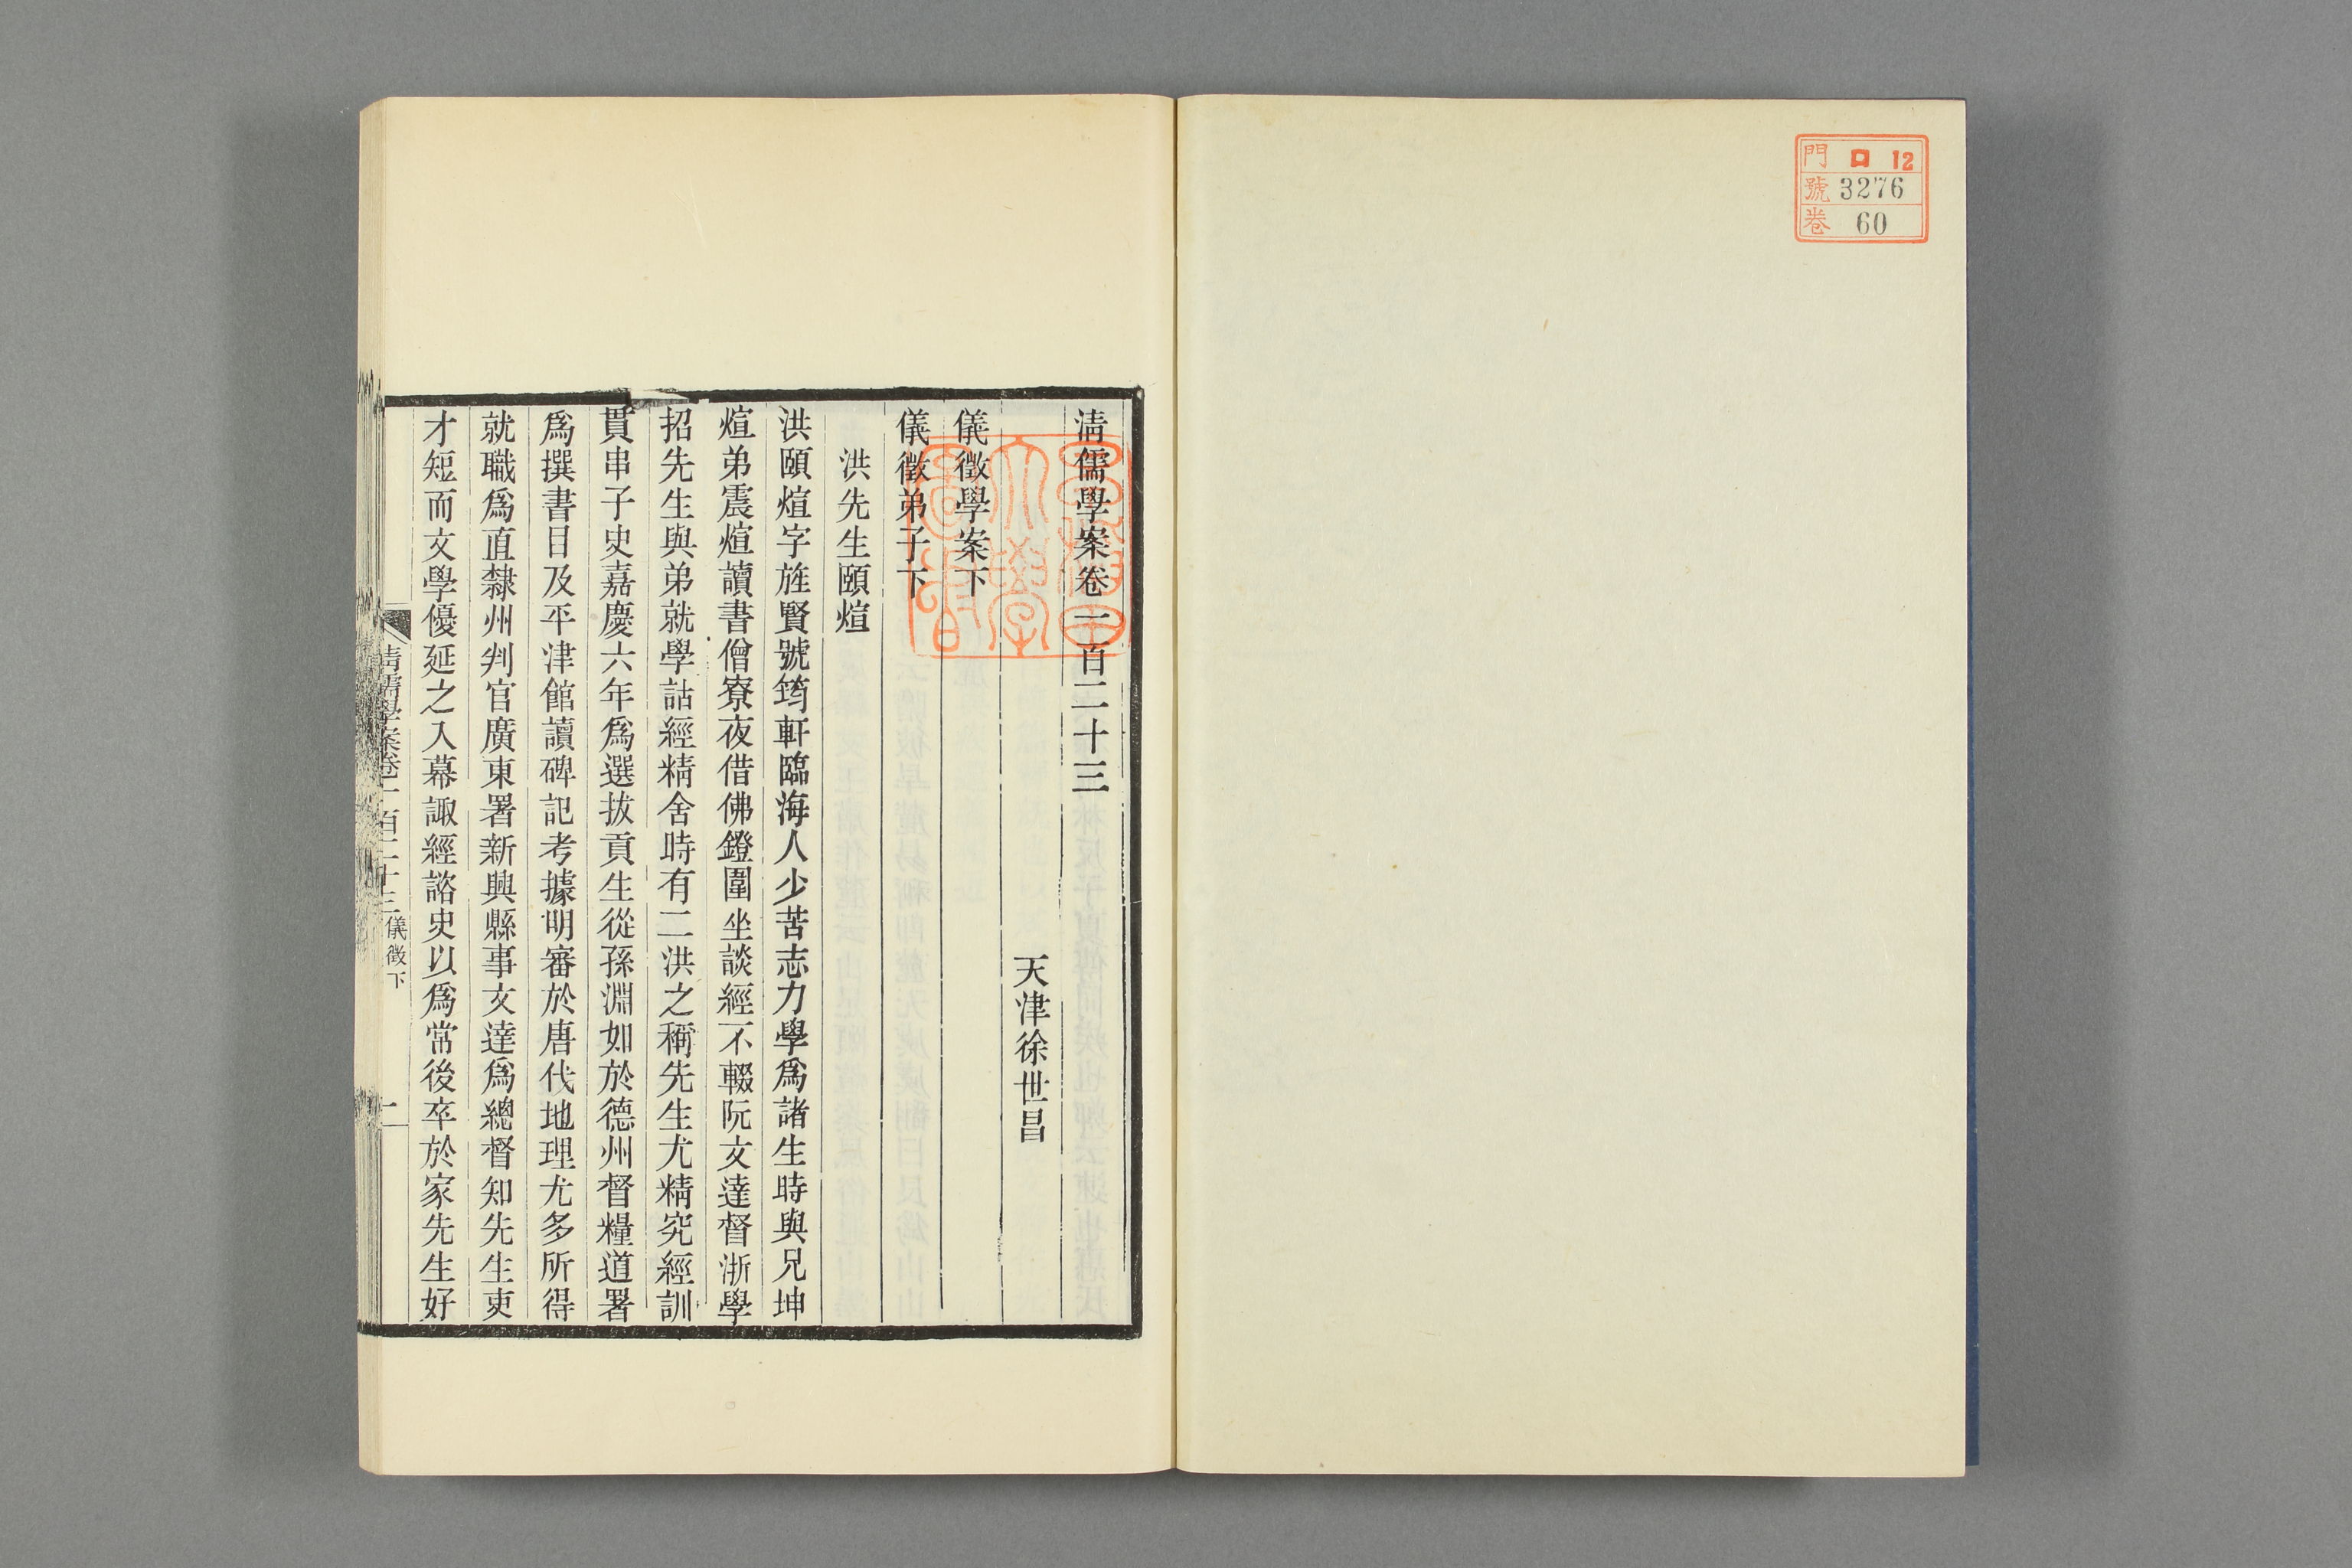 門 ロ 12
號 3276
卷 60
清儒學案卷一百二十三
天津徐世昌
儀徵學案下
儀徵弟子下
洪先生頤煊
洪頤煊字旌賢號筠軒臨海人少苦志力學爲諸生時與兄坤
煊弟震煊讀書僧寮夜借佛鐙圍坐談經不輟阮文達督浙學
招先生與弟就學詁經精舍時有二洪之稱先生尤精究經訓
貫串子史嘉慶六年爲選拔貢生從孫淵如於德州督糧道署
爲撰書目及平津館讀碑記考據明審於唐代地理尤多所得
就職爲直隸州判官廣東署新興縣事文達爲總督知先生吏
才短而文學優延之入幕諏經諮史以爲常後卒於家先生好
清儒學案卷一百二十三 儀徵下